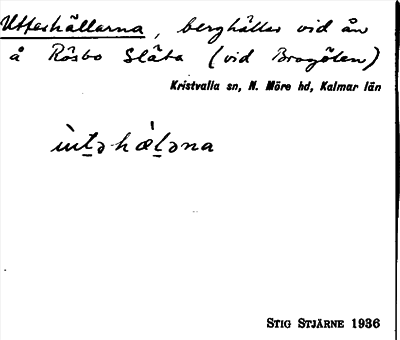 Utterhällarna, berghällar vid ån
å Rösbo Slåta (vid Brogölen)
Kristvalla sn, N. Möre hd, Kalmar län
STIG STJÄRNE 1936